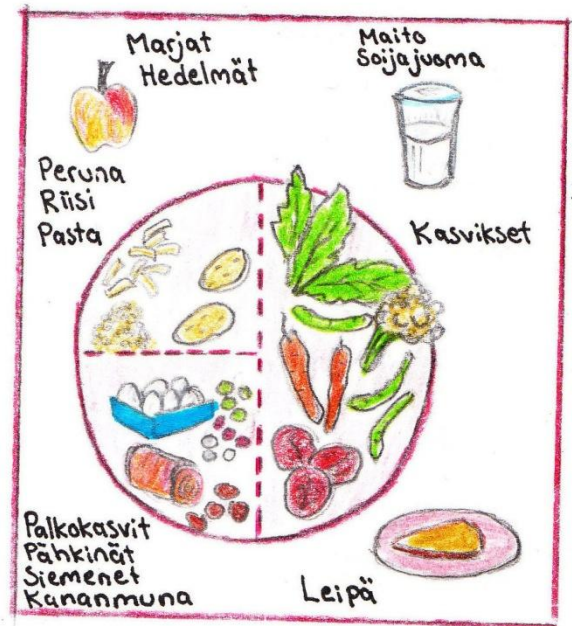 Marjat
Hedelmät
Maito
Soijajuoma
Peruna
Riisi
Pasta
Kasvikset
Palkokasvit
Pähkinät
Siemenet
Kananmuna
Leipä